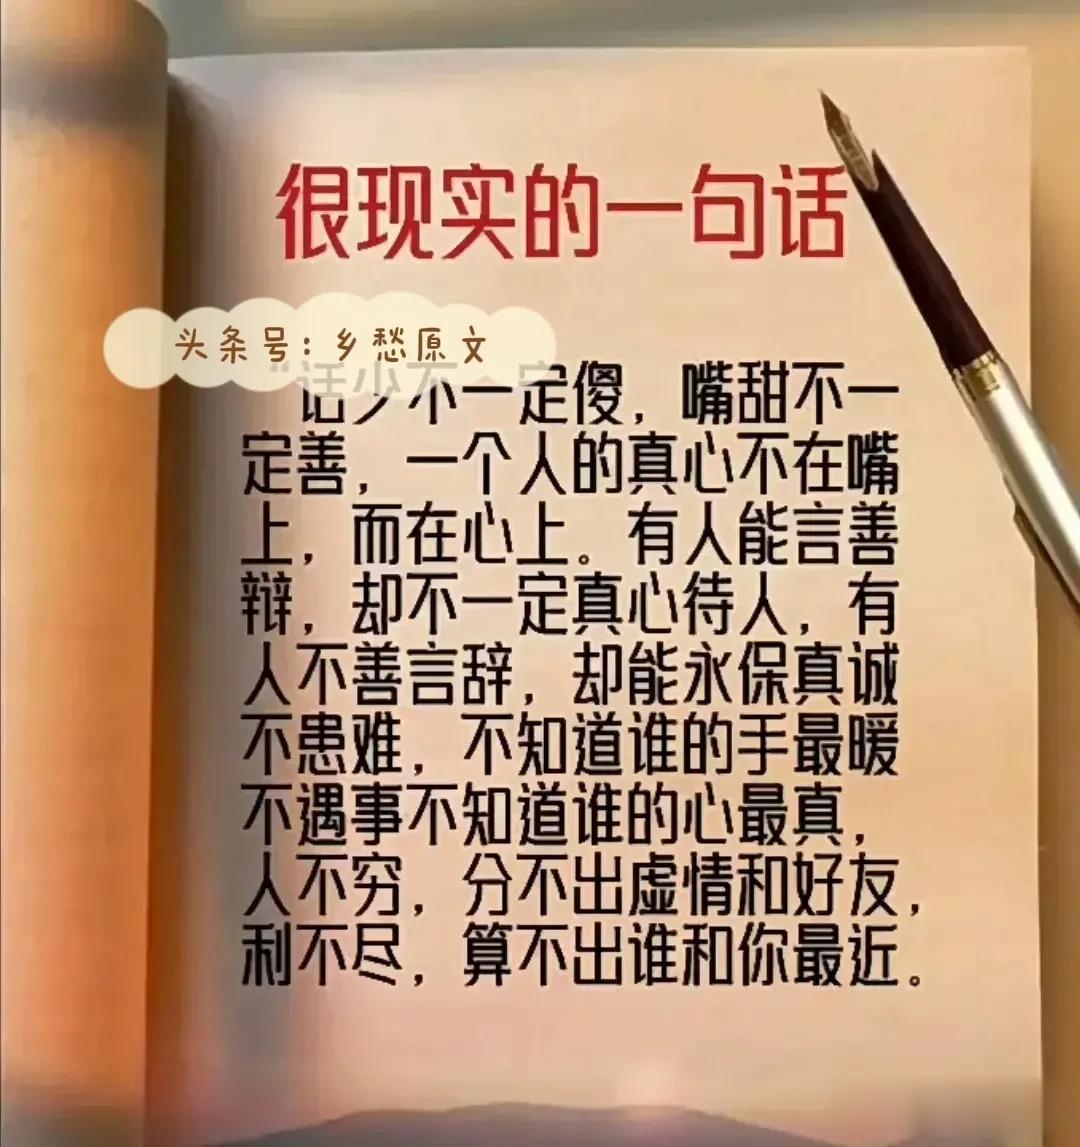 很现实的一句话
头条号:乡愁原文
“话少不一定傻，嘴甜不一
定善，一个人的真心不在嘴
上，而在心上。有人能言善
辩，却不一定真心待人，有
人不善言辞，却能永保真诚
不患难，不知道谁的手最暖
不遇事不知道谁的心最真，
人不穷，分不出虚情和好友，
利不尽，算不出谁和你最近。